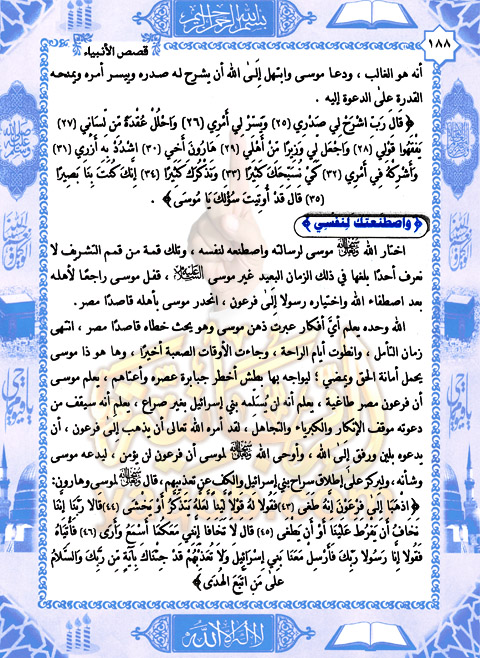 بسم الله الرحمن الرحيم
١٨٨
قصص الأنبياء
أنه هو الغالب ، ودعا موسى وابتهل إلى الله أن يشرح له صدره وييسر أمره ويمنحه
القدرة على الدعوة إليه .
﴿ قَالَ رَبِّ اشْرَحْ لِي صَدْرِي (٢٥) وَيَسِّرْ لِي أَمْرِي (٢٦) وَاحْلُلْ عُقْدَةً مِّن لِّسَانِي (٢٧)
يَفْقَهُوا قَوْلِي (٢٨) وَاجْعَل لِّي وَزِيرًا مِّنْ أَهْلِي (٢٩) هَارُونَ أَخِي (٣٠) اشْدُدْ بِهِ أَزْرِي (٣١)
وَأَشْرِكْهُ فِي أَمْرِي (٣٢) كَيْ نُسَبِّحَكَ كَثِيرًا (٣٣) وَنَذْكُرَكَ كَثِيرًا (٣٤) إِنَّكَ كُنتَ بِنَا بَصِيرًا
(٣٥) قَالَ قَدْ أُوتِيتَ سُؤْلَكَ يَا مُوسَى ﴾ .
﴿ وَاصْطَنَعْتُكَ لِنَفْسِي ﴾
اختار الله موسى لرسالته واصطنعه لنفسه ، وتلك قمة من قمم التشريف لا
نعرف أحدًا بلغها في ذلك الزمان البعيد غير موسى ، قفل موسى راجعًا لأهله
بعد اصطفاء الله واختياره رسولا إلى فرعون ، انحدر موسى بأهله قاصدًا مصر .
الله وحده يعلم أيَّ أفكار عبرت ذهن موسى وهو يحث خطاه قاصدًا مصر ، انتهى
زمان التأمل ، وانطوت أيام الراحة ، وجاءت الأوقات الصعبة أخيرًا ، وها هو ذا موسى
يحمل أمانة الحق ويمضي ؛ ليواجه بها بطش أخطر جبابرة عصره وأعتاهم ، يعلم موسى
أن فرعون مصر طاغية ، يعلم أنه لن يُسلمه بني إسرائيل بغير صراع ، يعلم أنه سيقف من
دعوته موقف الإنكار والكبرياء والتجاهل ، لقد أمره الله تعالى أن يذهب إلى فرعون ، أن
يدعوه بلين ورفق إلى الله ، وأوحى الله لموسى أن فرعون لن يؤمن ، ليدعه موسى
وشأنه ، وليركز على إطلاق سراح بني إسرائيل والكف عن تعذيبهم ، قال لموسى وهارون:
﴿ اذْهَبَا إِلَى فِرْعَوْنَ إِنَّهُ طَغَى (٤٣) فَقُولَا لَهُ قَوْلًا لَّيِّنًا لَّعَلَّهُ يَتَذَكَّرُ أَوْ يَخْشَى (٤٤) قَالَا رَبَّنَا إِنَّنَا
نَخَافُ أَن يَفْرُطَ عَلَيْنَا أَوْ أَن يَطْغَى (٤٥) قَالَ لَا تَخَافَا إِنَّنِي مَعَكُمَا أَسْمَعُ وَأَرَى (٤٦) فَأْتِيَاهُ
فَقُولَا إِنَّا رَسُولَا رَبِّكَ فَأَرْسِلْ مَعَنَا بَنِي إِسْرَائِيلَ وَلَا تُعَذِّبْهُمْ قَدْ جِئْنَاكَ بِآيَةٍ مِّن رَّبِّكَ وَالسَّلَامُ
عَلَى مَنِ اتَّبَعَ الْهُدَى ﴾
لا إله إلا الله